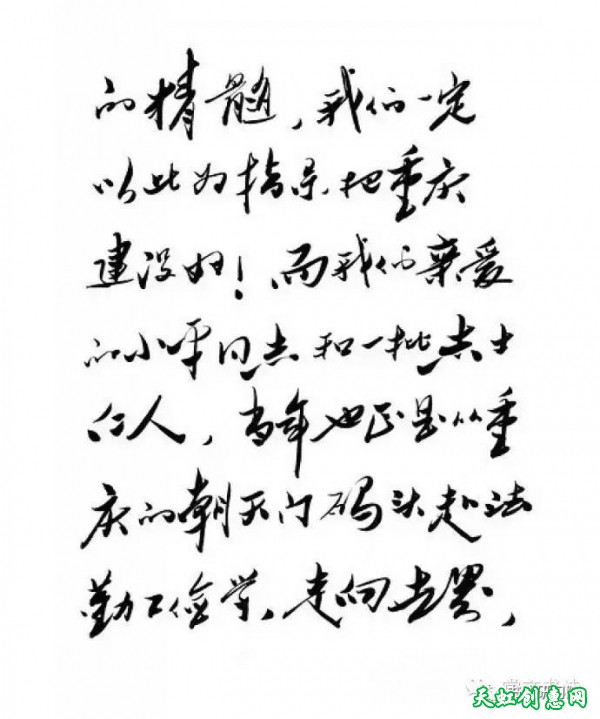 的精髓，我们一定
以此为指导把重庆
建设好！而我们亲爱
的小平同志和一批志士
仁人，当年也正是从重
庆的朝天门码头赴法
勤工俭学，走向世界，
天虹创意网